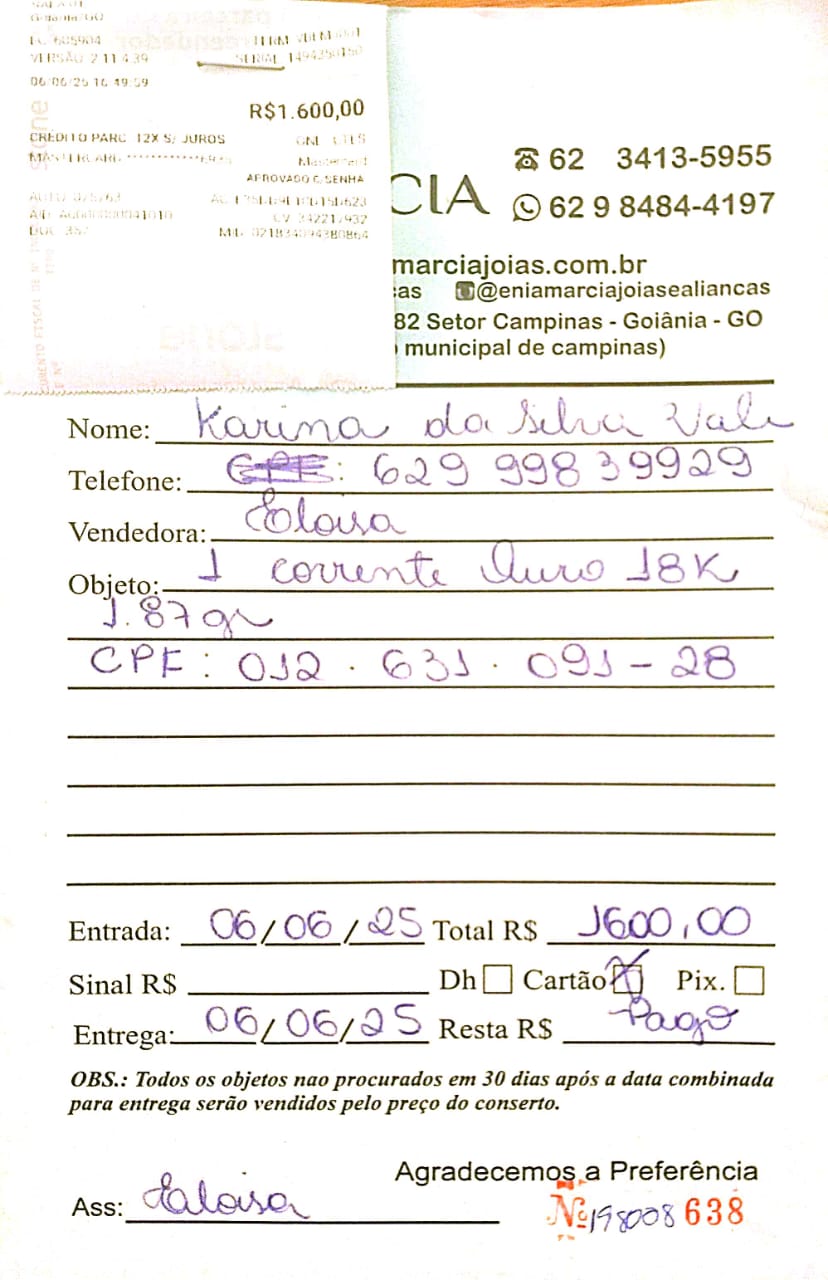 Goiânia/GO
VERSÃO 2.11.4.39 SERIAL 1494250150
06/06/25 16:49:59
R$1.600,00
CREDITO PARC. 12X S/ JUROS
Mastercard
APROVADO C. SENHA
CIA
62 3413-5955
62 9 8484-4197
marciajoias.com.br
@eniamarciajoiasealiancas
82 Setor Campinas - Goiânia - GO
municipal de campinas)
Nome: Karina da Silva Vale
Telefone: CPF: 629 99839929
Vendedora: Eloisa
Objeto: 1 corrente Ouro 18K
1.87gr
CPF: 012.631.091-28
Entrada: 06/06/25 Total R$ 1600,00
Sinal R$ Dh Cartão X Pix.
Entrega: 06/06/25 Resta R$ Pago
OBS.: Todos os objetos nao procurados em 30 dias após a data combinada
para entrega serão vendidos pelo preço do conserto.
Agradecemos a Preferência
Ass: Eloisa
Nº 198008 638